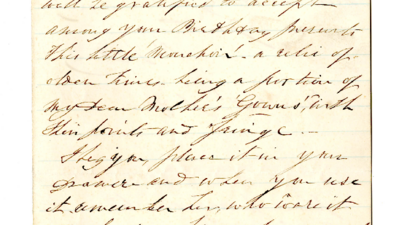 will be gratified to accept
among your Birthday presents
this little "Mouchoir" a relic of
olden times being a portion of
my dear Mother's Gowns, with
thin points and fringe. —
I beg you place it in your
drawer and when you use
it remember her, who wore it